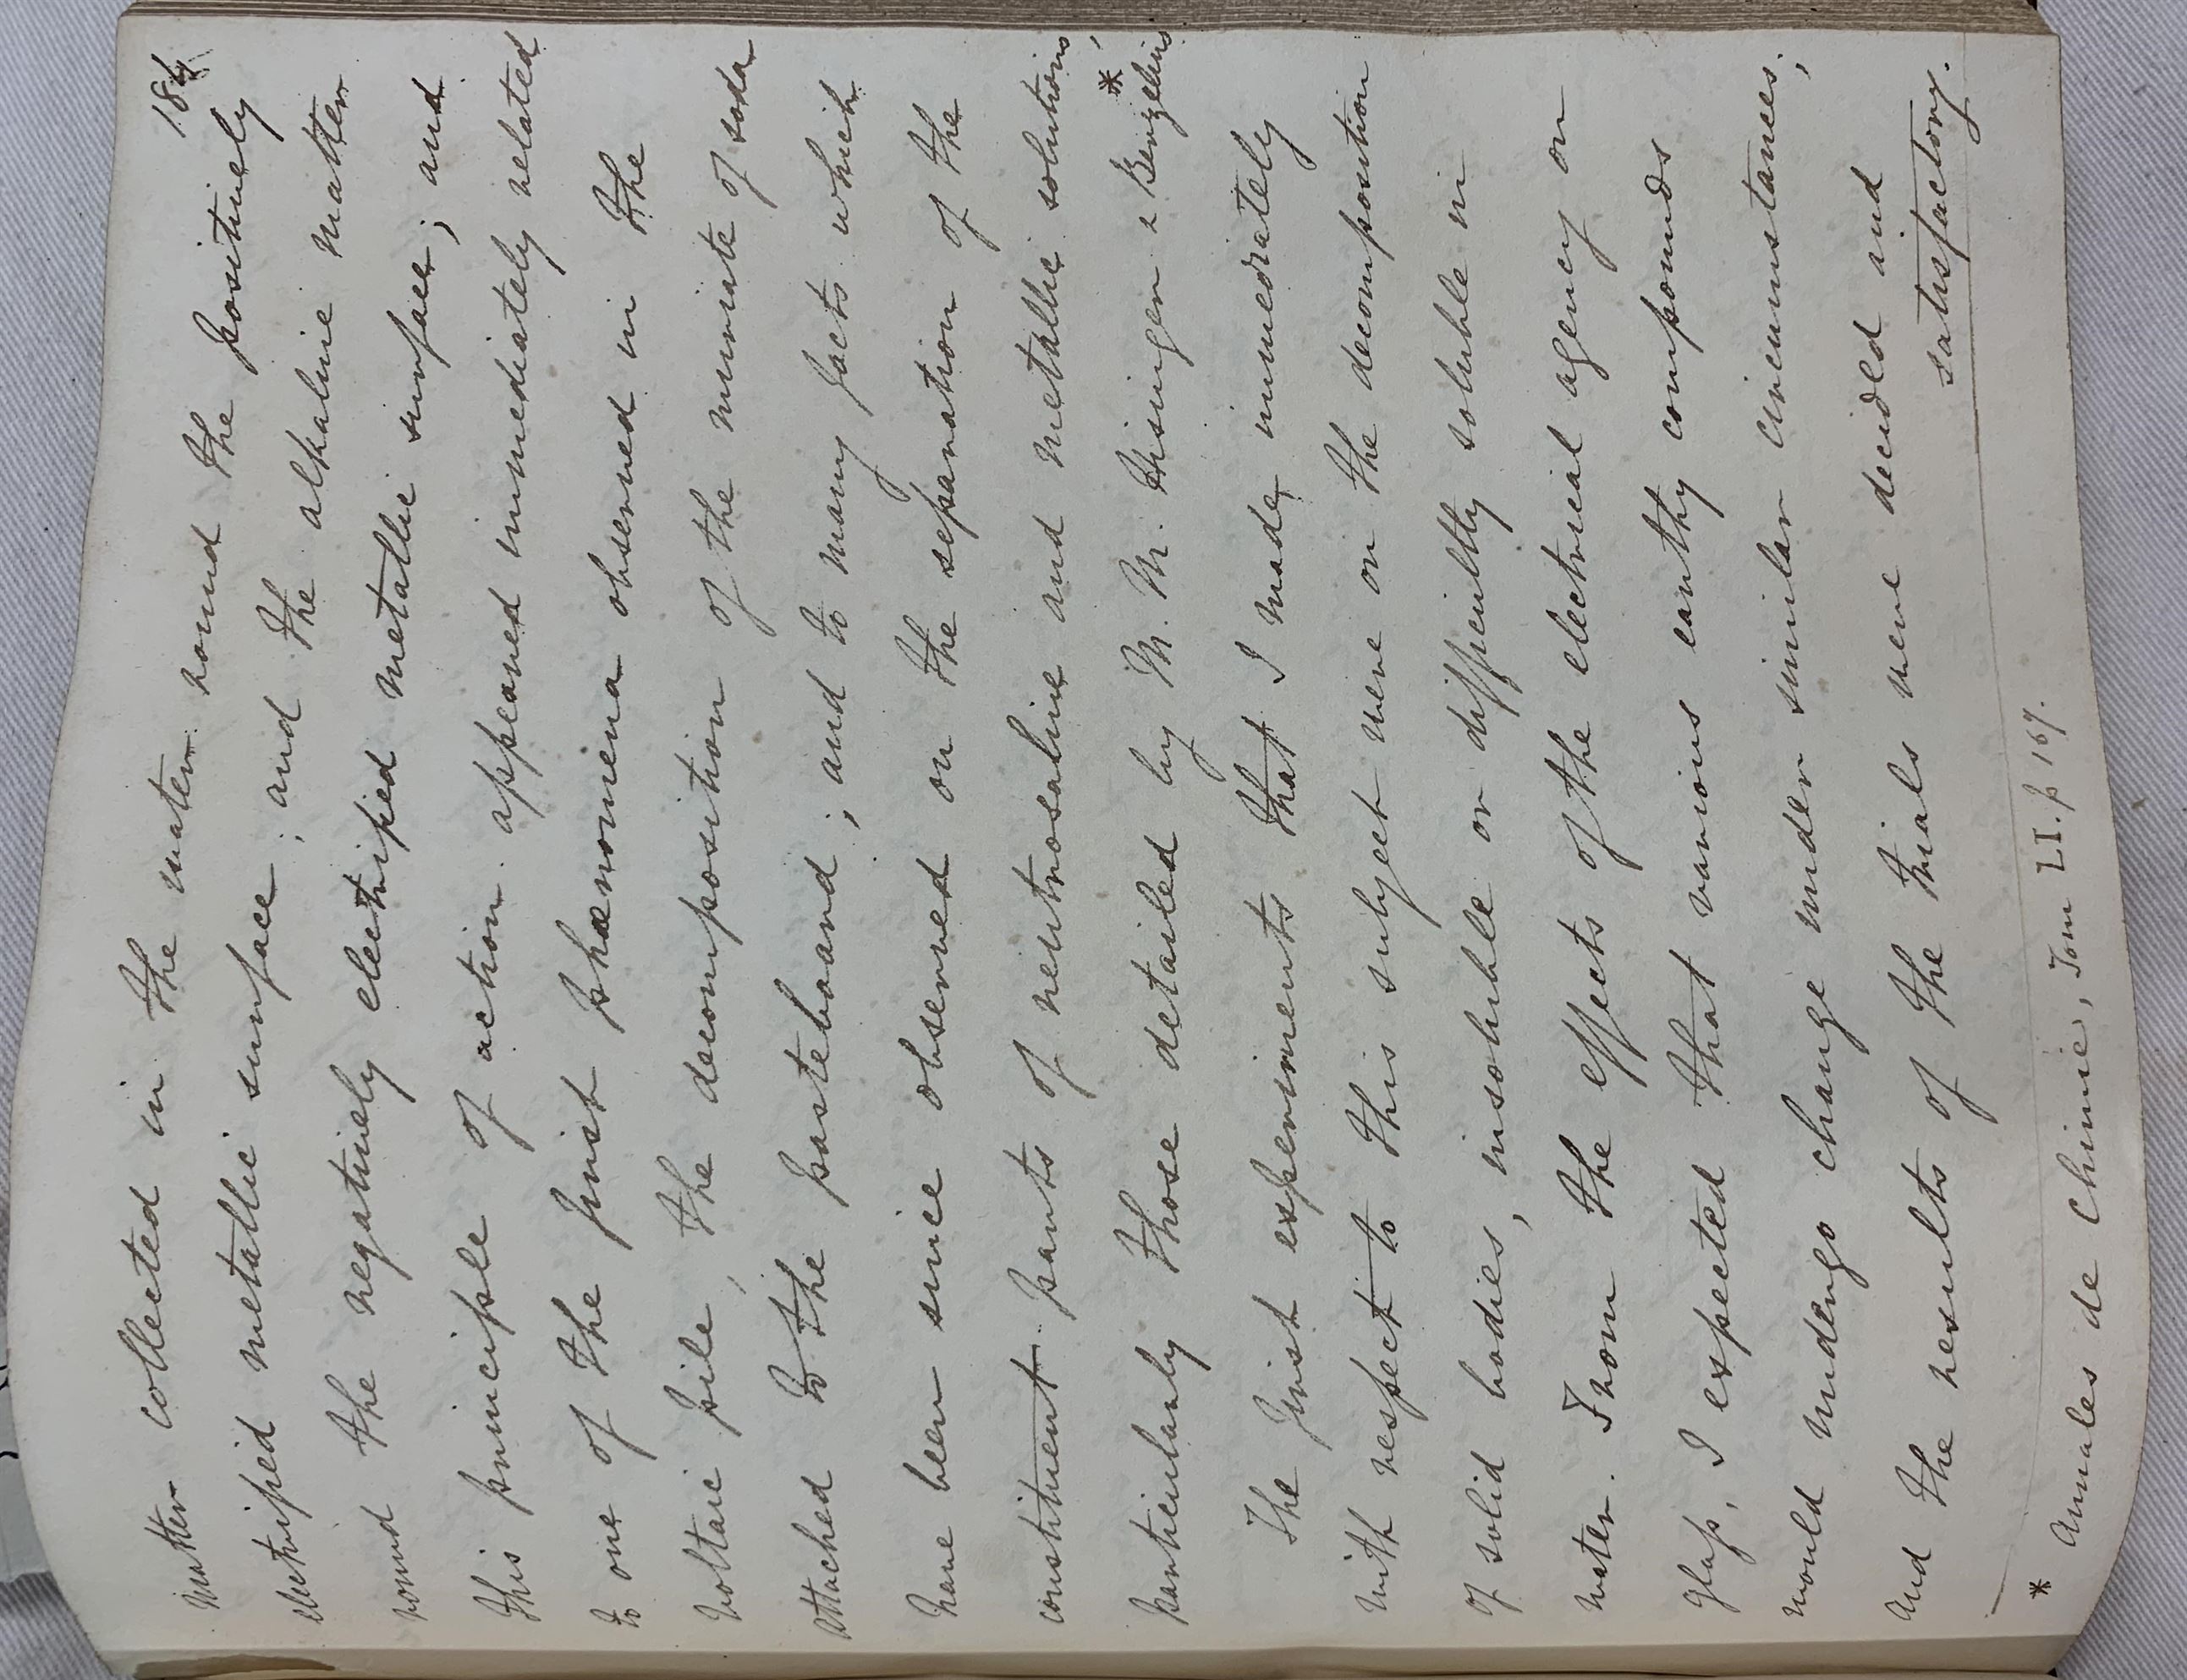 184
matter collected in the water round the positively
electrified metallic surface; and the alkaline matter
round the negatively electrified metallic surface; and
this principle of action appeared immediately related
to one of the first phænomena observed in the
voltaic pile, the decomposition of the muriate of soda
attached to the pasteboard; and to many facts which
have been since observed on the separation of the
constituent parts of neutrosaline and metallic solutions,
particularly those detailed by M. M. Hisinger & Berzelius*
The first experiments that I made immediately
with respect to this subject were on the decomposition
of solid bodies, insoluble or difficultly soluble in
water. From the effects of the electrical agency on
glass, I expected that various earthy compounds
would undergo change under similar circumstances;
and the results of the trials were decided and
satisfactory.
* Annales de Chimie, Tom LI. p 167.